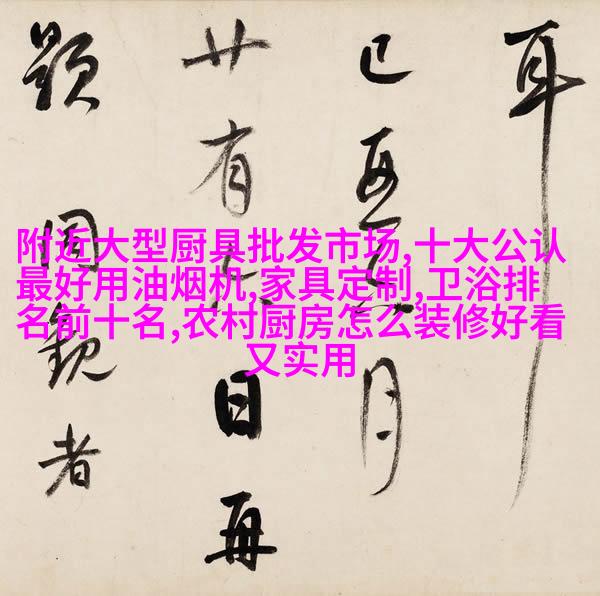 附近大型厨具批发市场,十大公认
最好用油烟机,家具定制,卫浴排
名前十名,农村厨房怎么装修好看
又实用
耳
月
廿有日再
題同觀者